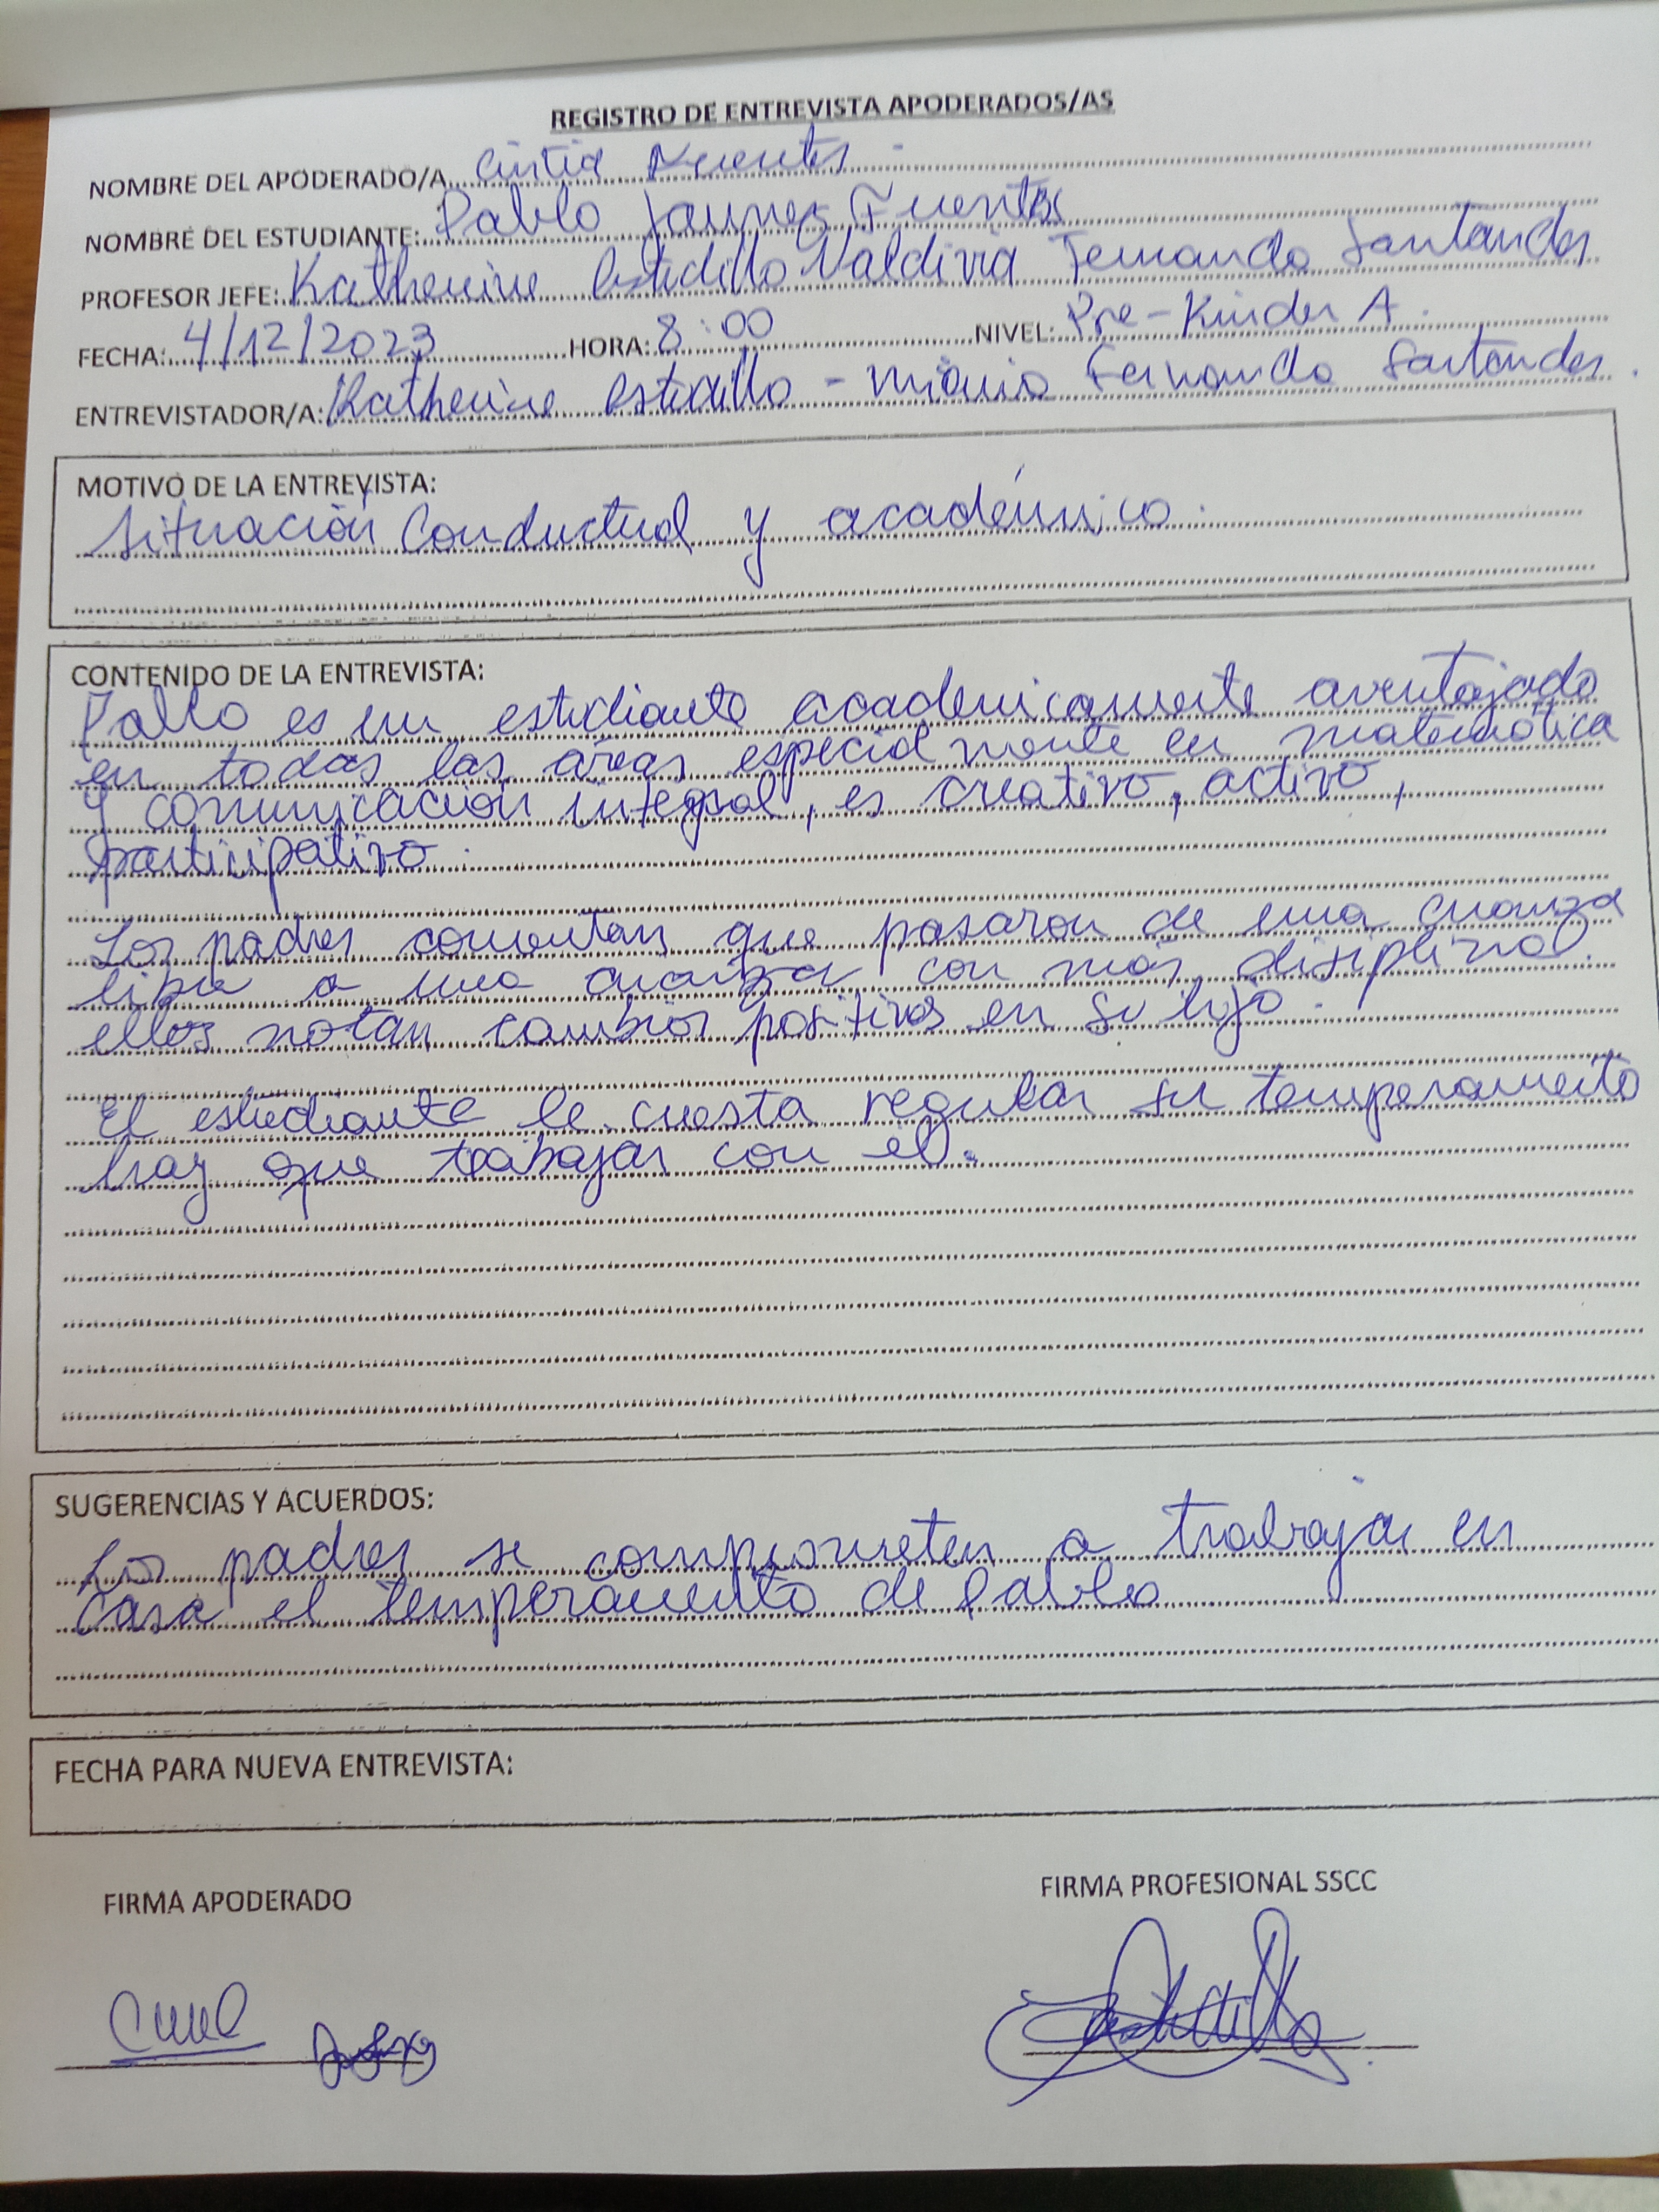 REGISTRO DE ENTREVISTA APODERADOS/AS
NOMBRE DEL APODERADO/A Cintia Fuentes
NOMBRE DEL ESTUDIANTE: Pablo Fuentes
PROFESOR JEFE: Katherine Valdivia Fernanda Santander
FECHA: 4/12/2023 HORA: 8:00 NIVEL: Pre-Kinder A.
ENTREVISTADOR/A: Katherine - Fernanda Santander.
MOTIVO DE LA ENTREVISTA:
Situación Conductual y académico.
CONTENIDO DE LA ENTREVISTA:
Pablo es un estudiante académicamente aventajado
en todas las áreas especialmente en matemática
y comunicación integral, es creativo, activo,
participativo.
Los padres comentan que pasaron de una crianza
libre a una crianza con más disiplina.
ellos notan cambios positivos en su hijo.
El estudiante le cuesta regular su temperamento
hay que trabajar con él.
SUGERENCIAS Y ACUERDOS:
Los padres se comprometen a trabajar en
casa el temperamento de Pablo
FECHA PARA NUEVA ENTREVISTA:
FIRMA APODERADO FIRMA PROFESIONAL SSCC